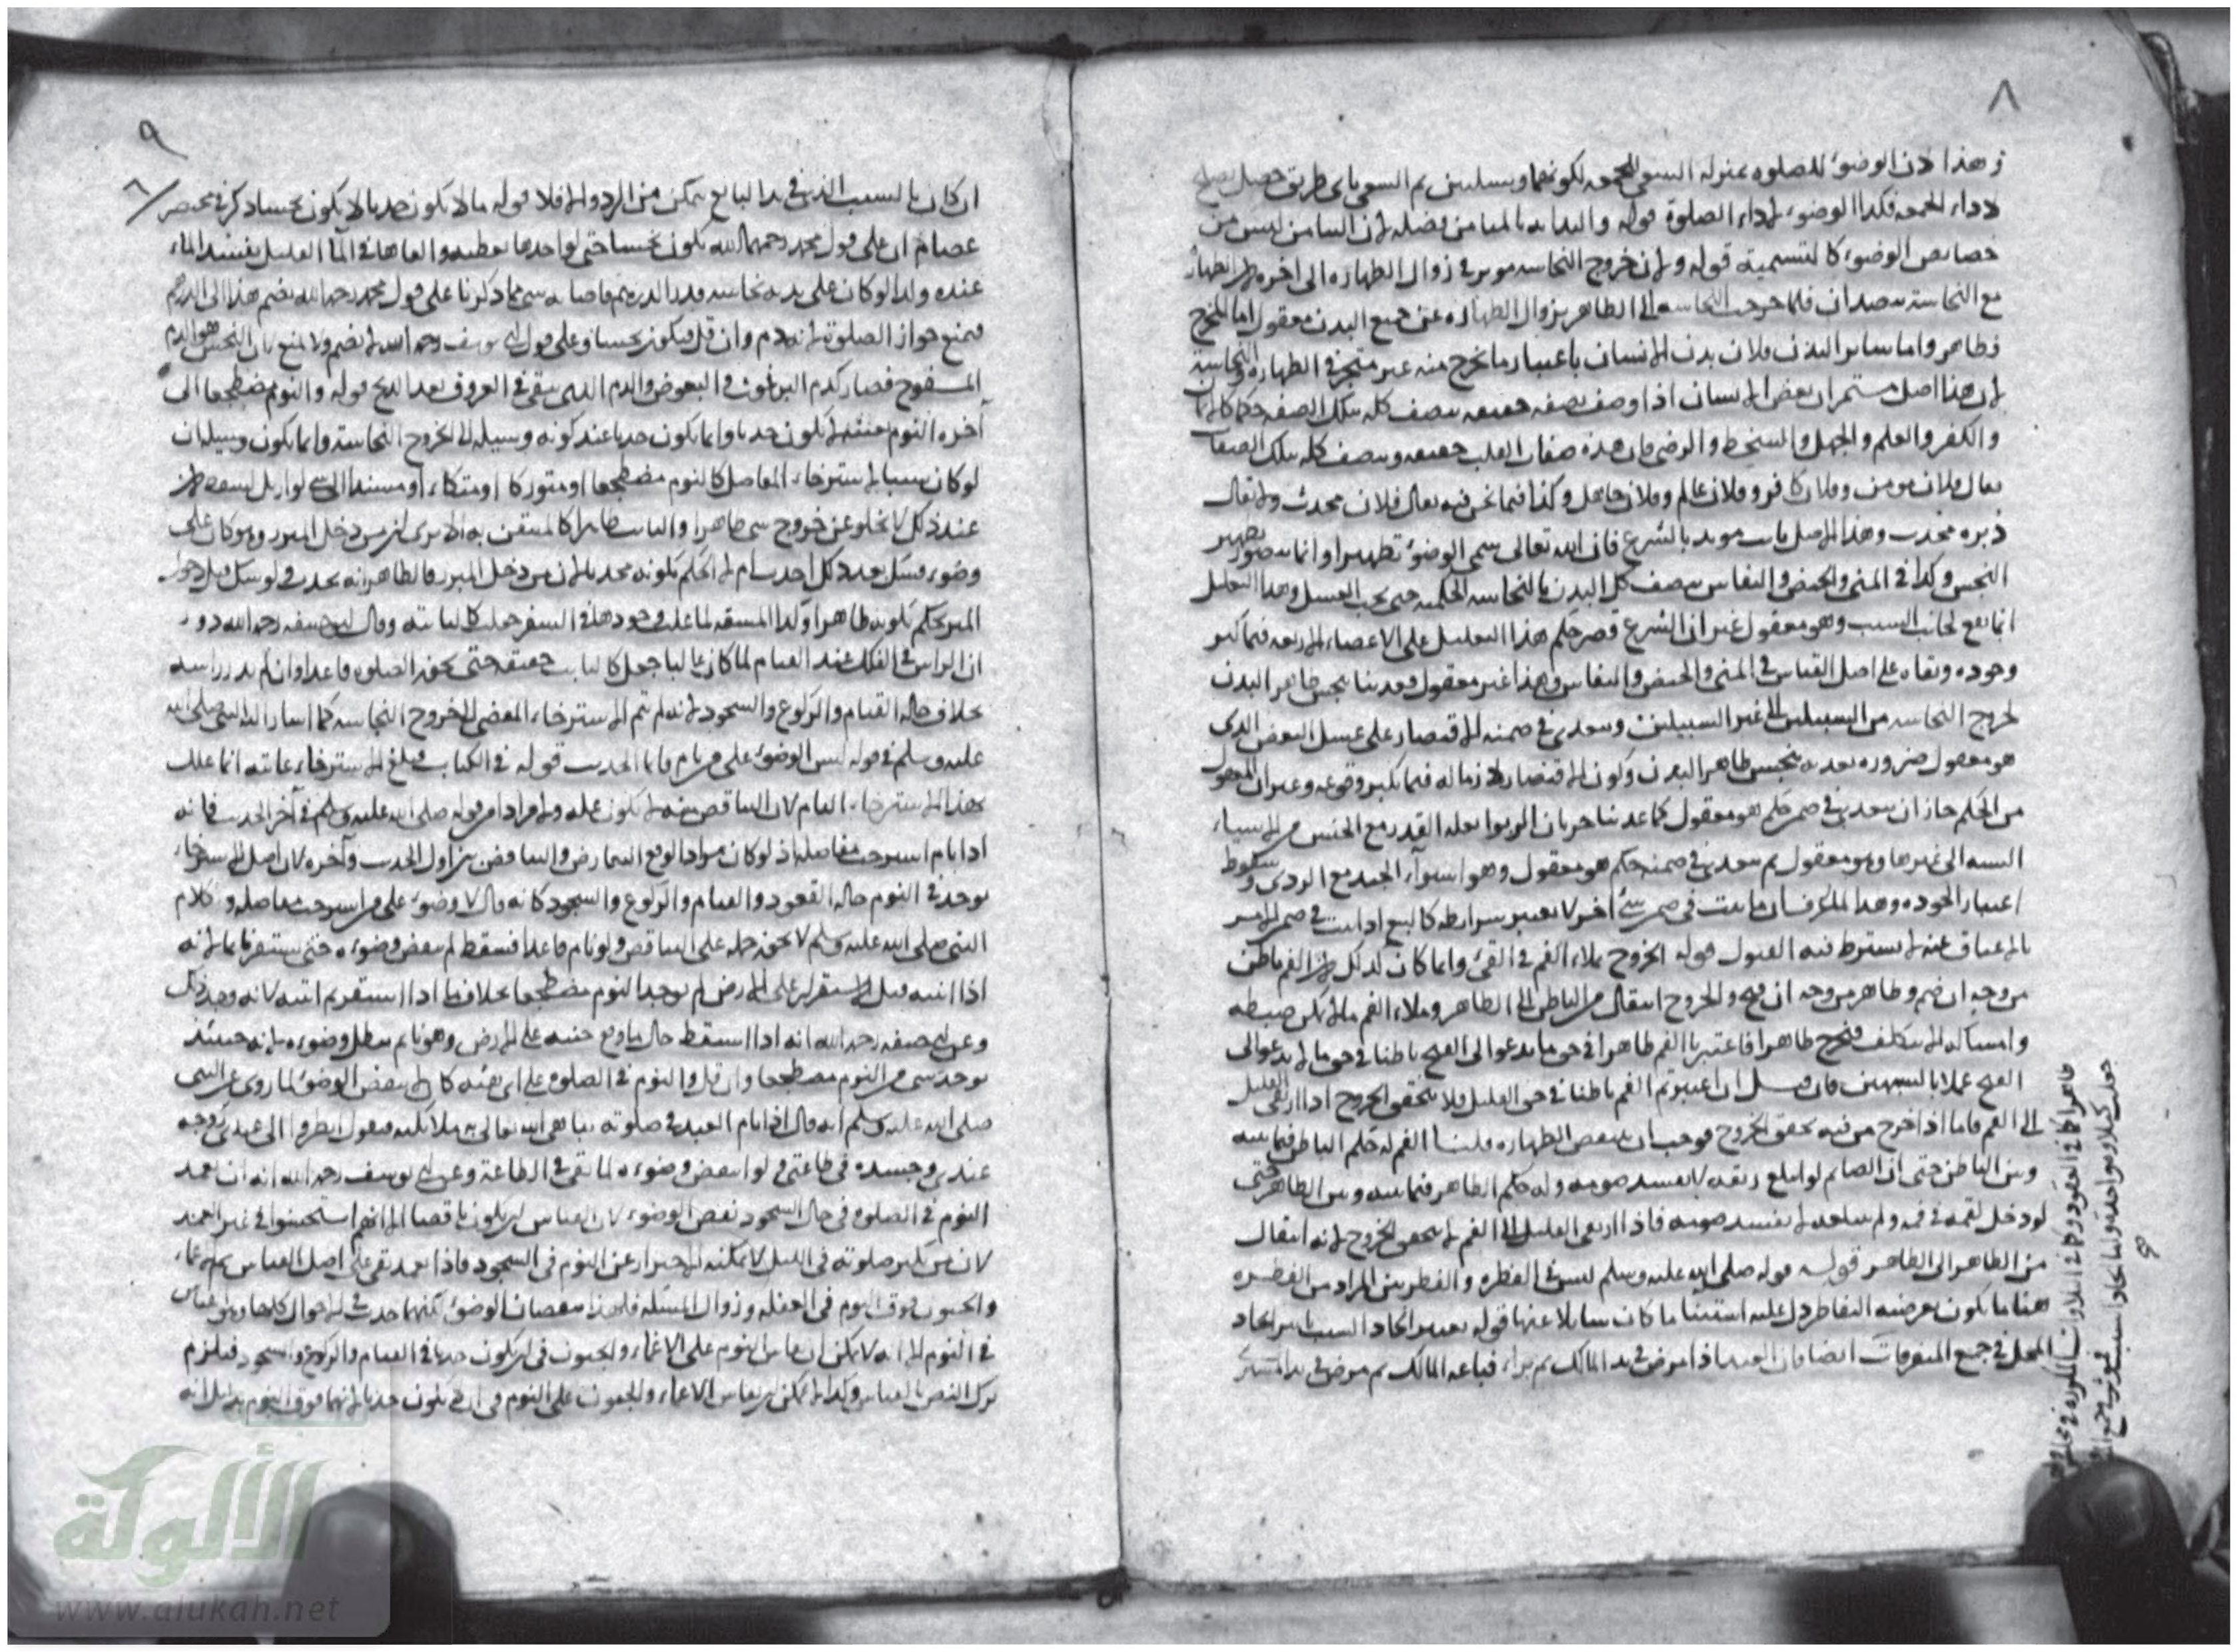 ٨
وهذا لان الوضوء للصلوة بمنزلة السعي للجمعة لكونهما وسيلتين ثم السعي باي طريق حصل يصلح
لاداء الجمعة فكذا الوضوء لاداء الصلوة قوله والبداية بالميامن فضيلة لان التيامن ليس من
خصايص الوضوء كالتسمية قوله ولان خروج النجاسة موثر في زوال الطهارة الى اخره لان الطهارة
مع النجاسة ضدان فلما خرجت النجاسة الى الظاهر يزول الطهارة عن جميع البدن معقول اما المخرج
فظاهر واما ساير البدن فلان بدن الانسان باعتبار ما يخرج منه غير متجز في الطهارة والنجاسة
لان هذا اصل مستمر ان بعض الانسان اذا وصف بصفة حقيقة يتصف كله بتلك الصفة حكما كالايمان
والكفر والعلم والجهل والسخط والرضى فان هذه صفات القلب حقيقة ويتصف كله بتلك الصفات
يقال فلان مومن وفلان كافر وفلان عالم وفلان جاهل وكذا فيما نحن فيه يقال فلان محدث ولا يقال
دبره محدث وهذا الاصل ثابت مويد بالشرع فان الله تعالى سمى الوضوء تطهيرا وانما يتصور تطهير
النجس وكذا في المني والحيض والنفاس يتصف كل البدن بالنجاسة الحكمية حتى يجب الغسل وهذا التعليل
انما يقع لجانب السبب وهو معقول غير ان الشرع قصر حكم هذا التعليل على الاعضاء الاربعة فيما كثر
وجوده وبقاه على اصل القياس في المني والحيض والنفاس وهذا غير معقول وعدينا نجس ظاهر البدن
لخروج النجاسة من السبيلين الى غير السبيلين وتعدى في ضمنه الاقتصار على غسل البعض الذي
هو معقول ضرورة تعدية تنجيس ظاهر البدن وكون الاقتصار لازما له فيما يكثر وقوعه وغير المعقول
من الحكم جاز ان يتعدى في ضمن حكم هو معقول كما عدينا جريان الربوا بعلة القدر مع الجنس من الاشياء
الستة الى غيرها وهو معقول ثم تعدى في ضمنه حكم هو معقول وهو استواء الجيد مع الردي وسقوط
اعتبار الجودة وهذا لما عرف ان ما يثبت في ضمن شئ اخر لا يعتبر شرايطه كالبيع اذا ثبت في ضمن الامر
بالاعتاق عنه لا يشترط فيه القبول قوله الخروج بملاء الفم في القئ وانما كان كذلك لان الفم باطن
من وجه ان ضم وظاهر من وجه ان فتح والخروج انتقال من الباطن الى الظاهر وملاء الفم ما لا يمكن ضبطه
وامساكه الا بتكلف فيخرج ظاهرا فاعتبرنا الفم ظاهرا في حق ما يدعوا الى الفتح باطنا في حق ما لا يدعوا الى
الفتح عملا بالشبهين فان قيل ان اعتبرتم الفم باطنا في حق القليل فلا يتحقق الخروج اذا ارتقى القليل
الى الفم فاما اذا خرج من فيه تحقق الخروج فوجب ان ينقض الطهارة قلنا الفم له حكم الباطن فيما بينه
وبين الباطن حتى ان الصايم لو ابتلع ريقه لا يفسد صومه وله حكم الظاهر فيما بينه وبين الظاهر حتى
لو دخل لقمة في فمه ولم يبتلعه لا يفسد صومه فاذا ارتقى القليل الى الفم لا يتحقق الخروج لانه انتقال
من الظاهر الى الظاهر قوله قوله صلى الله عليه وسلم ليس في القطرة والقطرتين المراد من القطرة
هنا ما يكون بعرضية التقاطر دل عليه استثنا ما كان سايلا عنها قوله يعتبر اتحاد السبب اتحاد
المحل في جميع المتفرقات ايضا فان العبد اذا مرض في يد المالك ثم براء فباعه المالك ثم مرض في يد المشتري
٩
ان كان بالسبب الذي في يد البايع يتمكن من الرد والا فلا قوله ما لا يكون حدثا لا يكون نجسا ذكر في مختصر
عصام ان على قول محمد رحمه الله يكون نجسا حتى لو اخذها بقطنة والقاها في الماء القليل يفسد الماء
عنده ولذا لو كان على بدنه نجاسة قدر الدرهم فاصابه شي مما ذكرنا على قول محمد رحمه الله يضم هذا الى الدرهم
فيمنع جواز الصلوة لانه دم وان قل فيكون نجسا وعلى قول ابي يوسف رحمه الله لا يضم ولا يمنع لان النجس هو الدم
المسفوح فصار كدم البرغوث والبعوض والدم الذي يبقى في العروق بعد الذبح قوله والنوم مضطجعا الى
آخره النوم عينه لا يكون حدثا وانما يكون حدثا عند كونه وسيلة الى خروج النجاسة وانما يكون وسيلة ان
لو كان سببا لاسترخاء المفاصل كالنوم مضطجعا او متوركا او متكاء او مستندا الى شي لو ازيل لسقط لان
عند ذلك لا يخلو عن خروج شي ظاهرا والثابت ظاهرا كالمتيقن به الا يرى ان من دخل المبرز وهو كان على
وضوء
المبرز يحكم بكونه ظاهرا ولذا المشقة لما غلب وجودها في السفر جعلت كالثابتة وقال ابو حنيفة رحمه الله دو
ان الراس في الفلك عند القيام لما كان غالبا جعل كالثابت حقيقة حتى يجوز الصلوة قاعدا وان لم يدر راسه
بخلاف حالة القيام والركوع والسجود لانه لم يتم الاسترخاء المفضي الى خروج النجاسة كما اشار اليه النبي صلى الله
عليه وسلم في قوله ليس الوضوء على من نام قايما الحديث قوله في الكتاب فبلغ الاسترخاء غايته انما علل
بهذا الاسترخاء التام لان الناقص منه لا يكون علة ولا مرادا من قوله صلى الله عليه وسلم في آخر الحديث فانه
اذا نام استرخت مفاصله اذ لو كان مرادا لوقع التعارض والتناقض بين اول الحديث وآخره لان اصل الاسترخاء
يوجد في النوم حالة القعود والقيام والركوع والسجود كانه قال لا وضوء على من استرخت مفاصله وكلام
النبي صلى الله عليه وسلم لا يجوز حمله على التناقض ولو نام قاعدا فسقط لم ينقض وضوءه حتى يستقر نايما لانه
اذا انتبه قبل الاستقرار على الارض لم يوجد النوم مضطجعا بخلاف ما اذا استقر ثم انتبه لانه وجد ذلك
وعن ابي حنيفة رحمه الله انه اذا سقط حال ما وقع جنبه على الارض وهو نايم بطل وضوءه لانه حينئذ
يوجد شي من النوم مضطجعا وان قل والنوم في الصلوة على اي هيئة كان لا ينقض الوضوء لما روى عن النبي
صلى الله عليه وسلم انه قال اذا نام العبد في صلوته يباهي الله تعالى به ملائكته فيقول انظروا الى عبدي روحه
عندي وجسده في طاعتي ولو انتقض وضوءه لما بقي في الطاعة وعن ابي يوسف رحمه الله انه ان تعمد
النوم في الصلوة في حال السجود نقض الوضوء لان القياس ان يكون ناقضا الا انهم استحسنوا في غير العمد
لان من يكثر صلوته في الليل لا يمكنه الاحتراز عن النوم في السجود فاذا تعمد بقي على اصل القياس ثم الاغماء
والجنون فوق النوم في الغفلة وزوال المسكة فلهذا ينقضان الوضوء لكنهما حدث في الاحوال كلها وهو القياس
في النوم الا انه لا يمكن ان يقاس النوم على الاغماء والجنون في ان يكون حدثا في القيام والركوع والسجود فيلزم
ترك النص بالقياس وكذا لا يمكن ان يقاس الاغماء والجنون على النوم في ان لا يكون حدثا لانهما فوق النوم بدليل انه
الألوكة
www.alukah.net